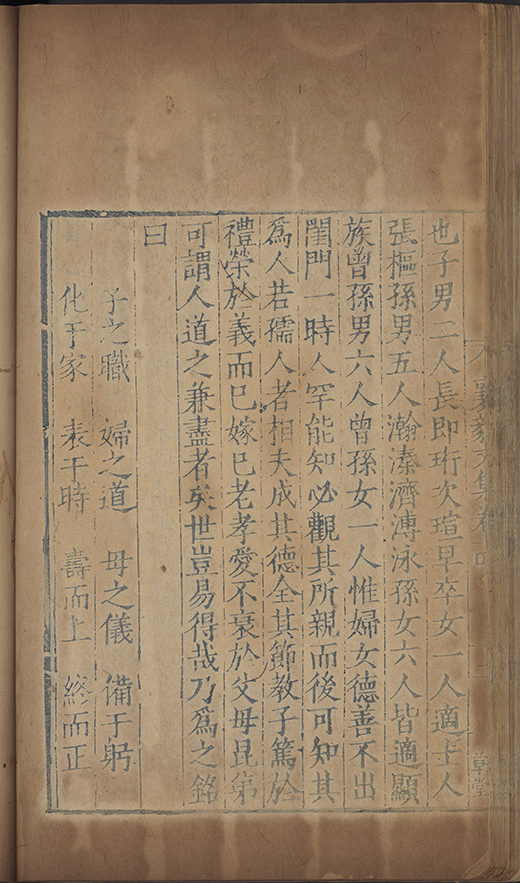 也子男二人長即珩次瑄早卒女一人適士人
張樞孫男五人瀚溱濟溥泳孫女六人皆適顯
族曾孫男六人曾孫女一人惟婦女德善不出
閨門一時人罕能知必觀其所親而後可知其
爲人若孺人者相夫成其德全其節教子篤於
禮榮於義而已嫁已老孝愛不衰於父母昆弟
可謂人道之兼盡者矣世豈易得哉乃爲之銘
曰
子之職 婦之道 母之儀 備于躬
化于家 表于時 壽而上 終而正
襄毅文集卷四
草堂